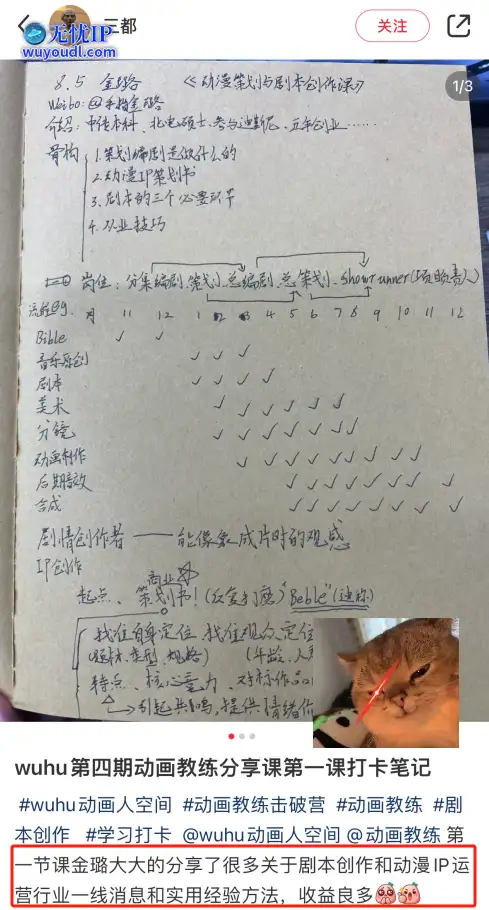 无忧IP
wuyoudl.com
三都
关注
1/3
8.5 金璐 《动漫策划与剧本创作课》
Weibo:@手指金璐
介绍:中传本科、北电硕士、参与迪士尼、五年创业……
骨构
1.策划编剧是做什么的
2.动漫IP策划书
3.剧本的三个必要环节
4.从业技巧
岗位:分集编剧、策划、总编剧、总策划、showrunner(项目负责人)
流程eg. 月 11 12 1 2 3 4 5 6 7 8 9 10 11 12
Bible ✓ ✓
音乐原创 ✓ ✓ ✓
剧本 ✓ ✓ ✓ ✓
美术 ✓ ✓ ✓ ✓ ✓ ✓
分镜 ✓ ✓ ✓ ✓ ✓ ✓ ✓
动画制作 ✓ ✓ ✓ ✓ ✓ ✓ ✓ ✓
后期音效 ✓ ✓ ✓ ✓ ✓ ✓ ✓
合成 ✓ ✓ ✓ ✓ ✓ ✓ ✓ ✓
剧情创作者——能像象成片时的观感
IP创作
商业☆
起点、策划书!(反复打磨)"Beble"(迪称)
找准自身定位 找准观众定位
(题材、类型、规格) (年龄、人
特点、核心竞力、对标作品
引起共鸣,提供情绪价
wuhu第四期动画教练分享课第一课打卡笔记
#wuhu动画人空间 #动画教练击破营 #动画教练 #剧
本创作 #学习打卡 @wuhu动画人空间 @动画教练 第
一节课金璐大大的分享了很多关于剧本创作和动漫IP运
营行业一线消息和实用经验方法,收益良多